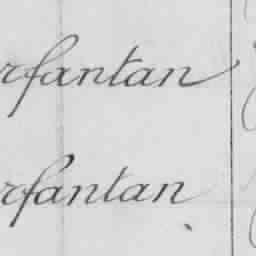 rfantan
rfantan